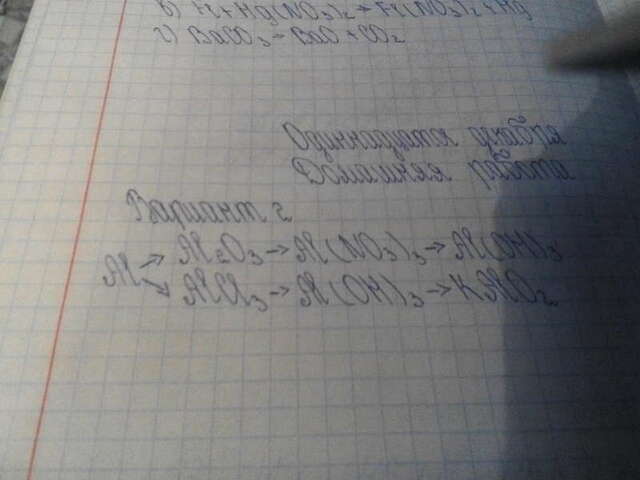 в) Fe + Hg(NO3)2 = Fe(NO3)2 + Hg
г) BaCO3 = BaO + CO2
Одиннадцатое декабря
Домашняя работа
Вариант 2
Al → Al2O3 → Al(NO3)3 → Al(OH)3
↘ AlCl3 → Al(OH)3 → KAlO2